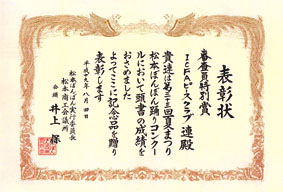 表彰状
審査員特別賞
ICFAピースクラブ連殿
貴連は第三十三回夏まつり
松本ぼんぼん踊りコンクー
ルにおいて頭書の成績を
おさめました
よってここに記念品を贈り
表彰します
平成十九年八月四日
松本ぼんぼん実行委員長
松本商工会議所
会頭 井上保